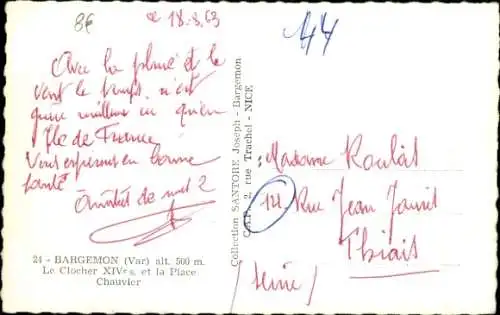 8€
le 18.8.63
44
Avec la pluie et le
vent le temps n'est
guère meilleur en qu'en
Ile de France
Vous espérons en bonne
santé
Amitiés de nous 2
24 - BARGEMON (Var) alt. 500 m.
Le Clocher XIVe s. et la Place
Chauvier
Collection SANTORE Joseph - Bargemon
2, rue Trachel - NICE
Madame Roulois
14 Rue Jean
Thiais
(Seine)